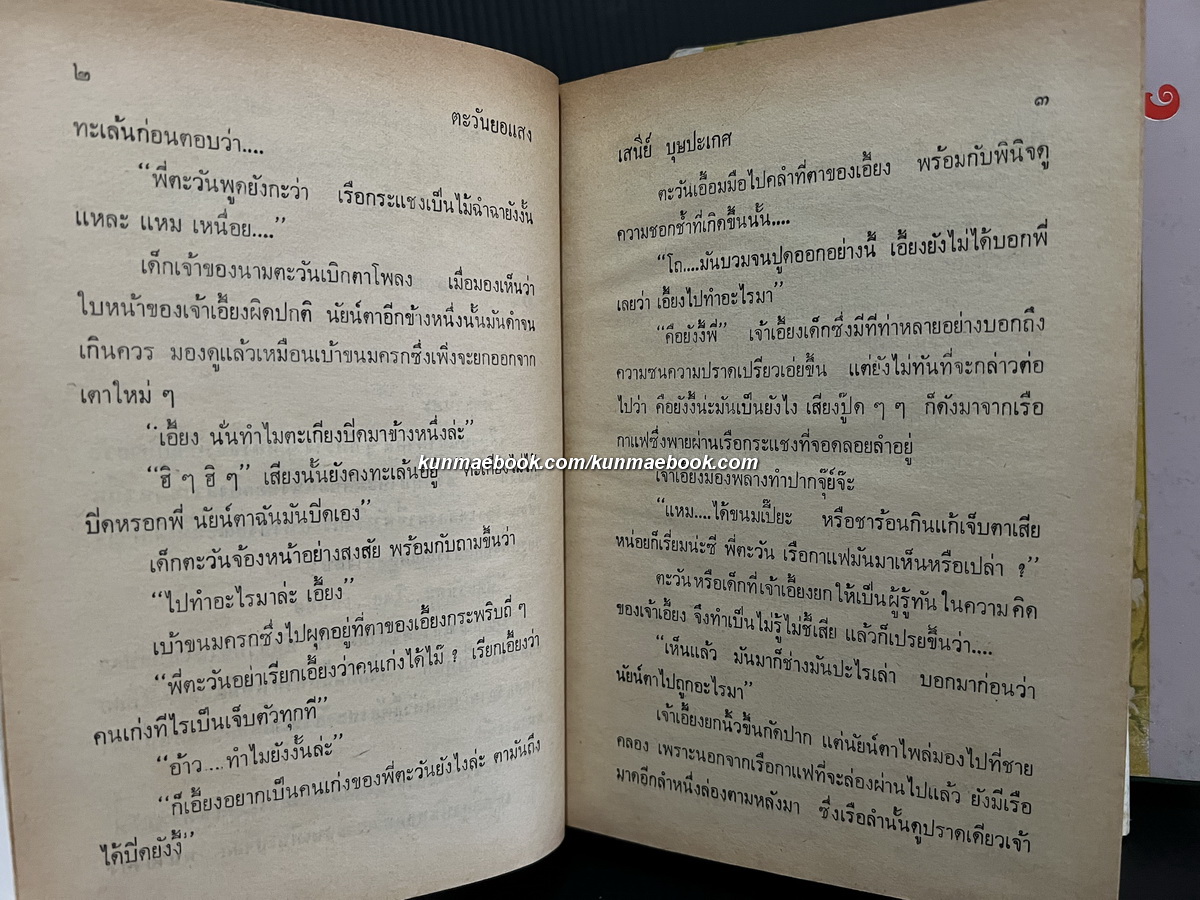 ๒
ตะวันยอแสง
ทะเล้นก่อนตอบว่า....
“พี่ตะวันพูดยังกะว่า เรือกระแชงเป็นไม้ฉำฉายังงั้น
แหละ แหม เหนื่อย....”
เด็กเจ้าของนามตะวันเบิกตาโพลง เมื่อมองเห็นว่า
ใบหน้าของเจ้าเอี้ยงผิดปกติ นัยน์ตาอีกข้างหนึ่งนั้นมันดำจน
เกินควร มองดูแล้วเหมือนเบ้าขนมครกซึ่งเพิ่งจะยกออกจาก
เตาใหม่ ๆ
“เอี้ยง นั่นทำไมตะเกียงปิดมาข้างหนึ่งล่ะ”
“ฮิ ๆ ฮิ ๆ” เสียงนั้นยังคงทะเล้นอยู่
ปิดหรอกพี่ นัยน์ตาฉันมันปิดเอง”
เด็กตะวันจ้องหน้าอย่างสงสัย พร้อมกับถามขึ้นว่า
“ไปทำอะไรมาล่ะ เอี้ยง”
เบ้าขนมครกซึ่งไปผุดอยู่ที่ตาของเอี้ยงกระพริบถี่ ๆ
“พี่ตะวันอย่าเรียกเอี้ยงว่าคนเก่งได้ไม๊ ? เรียกเอี้ยงว่า
คนเก่งทีไรเป็นเจ็บตัวทุกที”
“อ้าว....ทำไมยังงั้นล่ะ”
“ก็เอี้ยงอยากเป็นคนเก่งของพี่ตะวันยังไงล่ะ ตามันถึง
ได้ปิดยังงี้”
๓
เสนีย์ บุษปะเกศ
ตะวันเอื้อมมือไปคลำที่ตาของเอี้ยง พร้อมกับพินิจดู
ความชอกช้ำที่เกิดขึ้นนั้น....
“โถ....มันบวมจนปูดออกอย่างนี้ เอี้ยงยังไม่ได้บอกพี่
เลยว่า เอี้ยงไปทำอะไรมา”
“คือยังงี้พี่” เจ้าเอี้ยงเด็กซึ่งมีทีท่าหลายอย่างบอกถึง
ความซนความปราดเปรียวเอ่ยขึ้น แต่ยังไม่ทันที่จะกล่าวต่อ
ไปว่า คือยังงี้น่ะมันเป็นยังไง เสียงปู๊ด ๆ ๆ ก็ดังมาจากเรือ
กาแฟซึ่งพายผ่านเรือกระแชงที่จอดลอยลำอยู่
เจ้าเอี้ยงมองพลางทำปากจุ๊ย์จ๊ะ
“แหม....ได้ขนมเปี๊ยะ หรือชาร้อนกินแก้เจ็บตาเสีย
หน่อยก็เรี่ยมน่ะซี พี่ตะวัน เรือกาแฟมันมาเห็นหรือเปล่า ?”
ตะวันหรือเด็กที่เจ้าเอี้ยงยกให้เป็นผู้รู้ทันในความคิด
ของเจ้าเอี้ยง จึงทำเป็นไม่รู้ไม่ชี้เสีย แล้วก็เปรยขึ้นว่า....
“เห็นแล้ว มันมาก็ช่างมันปะไรเล่า บอกมาก่อนว่า
นัยน์ตาไปถูกอะไรมา”
เจ้าเอี้ยงยกนิ้วขึ้นกัดปาก แต่นัยน์ตาไพล่มองไปที่ชาย
คลอง เพราะนอกจากเรือกาแฟที่จะล่องผ่านไปแล้ว ยังมีเรือ
มาดอีกลำหนึ่งล่องตามหลังมา ซึ่งเรือลำนั้นดูปราดเดียวเจ้า
kunmaebook.com/kunmaebook.com